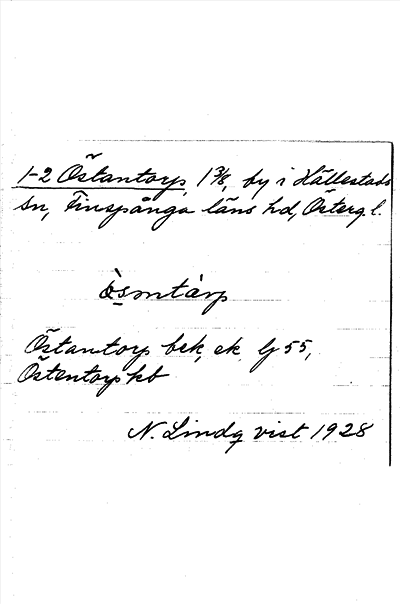 1-2 Östantorp, 1 3/8, by i Hällestads
sn, Finspånga läns hd, Österg. l.
òsmtàrp
Östantorp bek, ek lj 55,
Östentorp kb
N. Lindqvist 1928